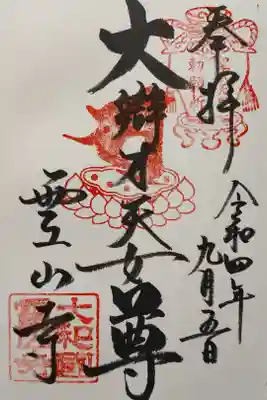 奉拝
令和四年
九月五日
大辯才天女尊
霊山寺